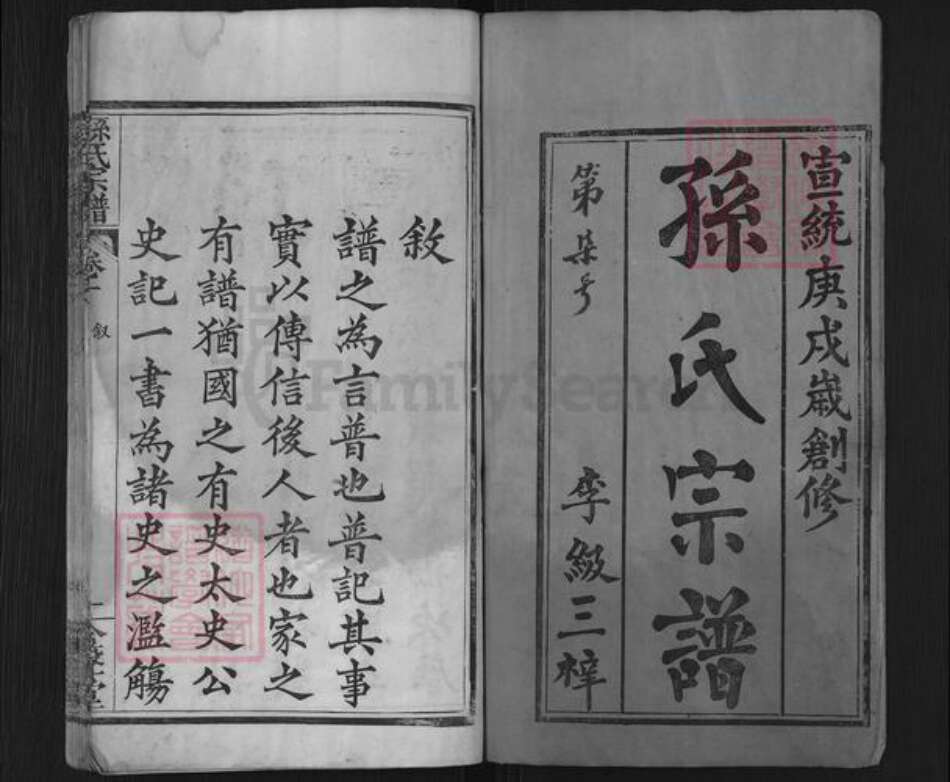 宣統庚戌歲創修
孫氏宗譜
第柒号
李級三梓
敘
譜之為言普也普記其事
實以傳信後人者也家之
有譜猶國之有史太史公
史記一書為諸史之濫觴
孫氏宗譜
叙
FamilySearch